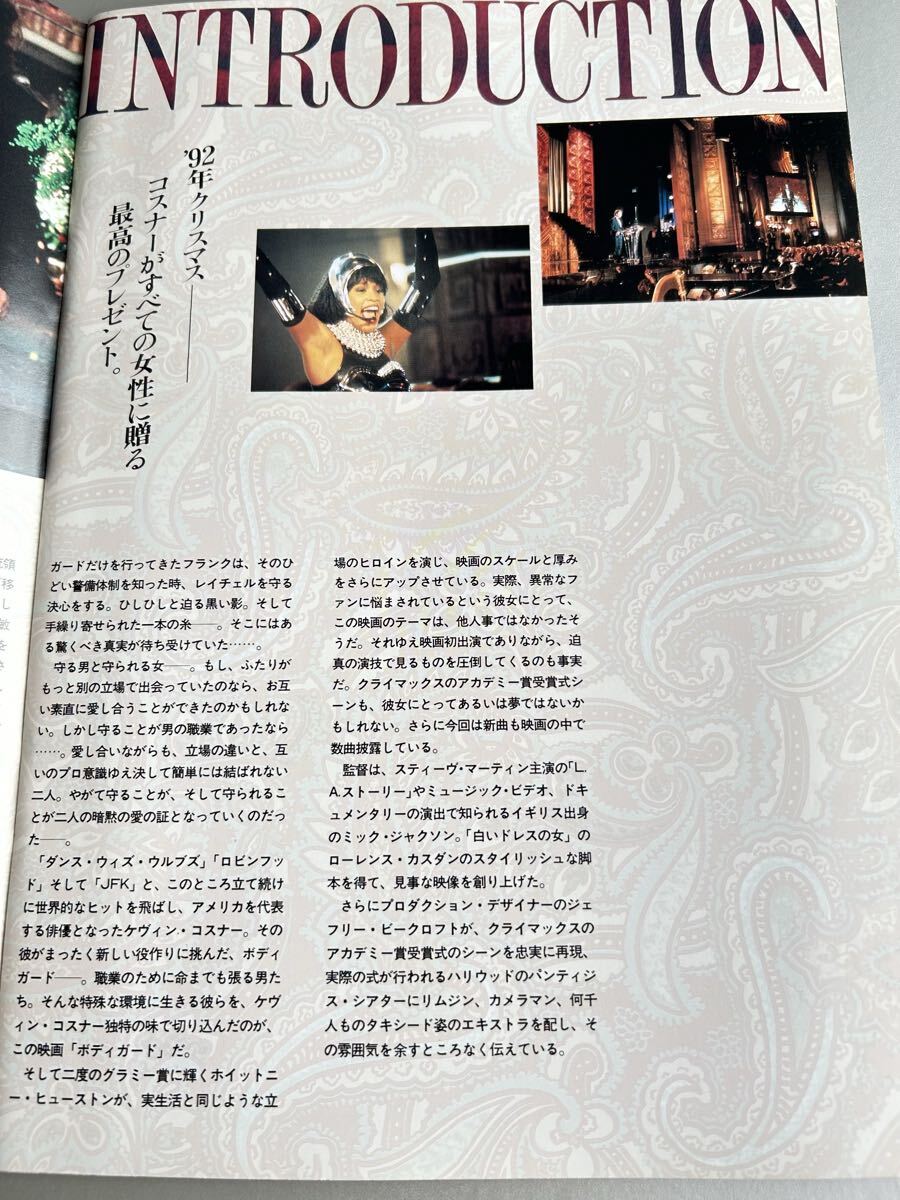 INTRODUCTION
'92年クリスマス――
コスナーがすべての女性に贈る
最高のプレゼント。
ガードだけを行ってきたフランクは、そのひ
どい警備体制を知った時、レイチェルを守る
決心をする。ひしひしと迫る黒い影。そして
手繰り寄せられた一本の糸――。そこにはあ
る驚くべき真実が待ち受けていた……。
守る男と守られる女――。もし、ふたりが
もっと別の立場で出会っていたのなら、お互
い素直に愛し合うことができたのかもしれな
い。しかし守ることが男の職業であったなら
……。愛し合いながらも、立場の違いと、互
いのプロ意識ゆえ決して簡単には結ばれない
二人。やがて守ることが、そして守られるこ
とが二人の暗黙の愛の証となっていくのだっ
た――。
「ダンス・ウィズ・ウルブズ」「ロビンフッ
ド」そして「JFK」と、このところ立て続け
に世界的なヒットを飛ばし、アメリカを代表
する俳優となったケヴィン・コスナー。その
彼がまったく新しい役作りに挑んだ、ボディ
ガード――。職業のために命までも張る男た
ち。そんな特殊な環境に生きる彼らを、ケヴ
ィン・コスナー独特の味で切り込んだのが、
この映画「ボディガード」だ。
そして二度のグラミー賞に輝くホイットニ
ー・ヒューストンが、実生活と同じような立
場のヒロインを演じ、映画のスケールと厚み
をさらにアップさせている。実際、異常なフ
ァンに悩まされているという彼女にとって、
この映画のテーマは、他人事ではなかったそ
うだ。それゆえ映画初出演でありながら、迫
真の演技で見るものを圧倒してくるのも事実
だ。クライマックスのアカデミー賞受賞式シ
ーンも、彼女にとってあるいは夢ではないか
もしれない。さらに今回は新曲も映画の中で
数曲披露している。
監督は、スティーヴ・マーティン主演の「L.
A.ストーリー」やミュージック・ビデオ、ドキ
ュメンタリーの演出で知られるイギリス出身
のミック・ジャクソン。「白いドレスの女」の
ローレンス・カスダンのスタイリッシュな脚
本を得て、見事な映像を創り上げた。
さらにプロダクション・デザイナーのジェ
フリー・ビークロフトが、クライマックスの
アカデミー賞受賞式のシーンを忠実に再現、
実際の式が行われるハリウッドのパンティジ
ス・シアターにリムジン、カメラマン、何千
人ものタキシード姿のエキストラを配し、そ
の雰囲気を余すところなく伝えている。